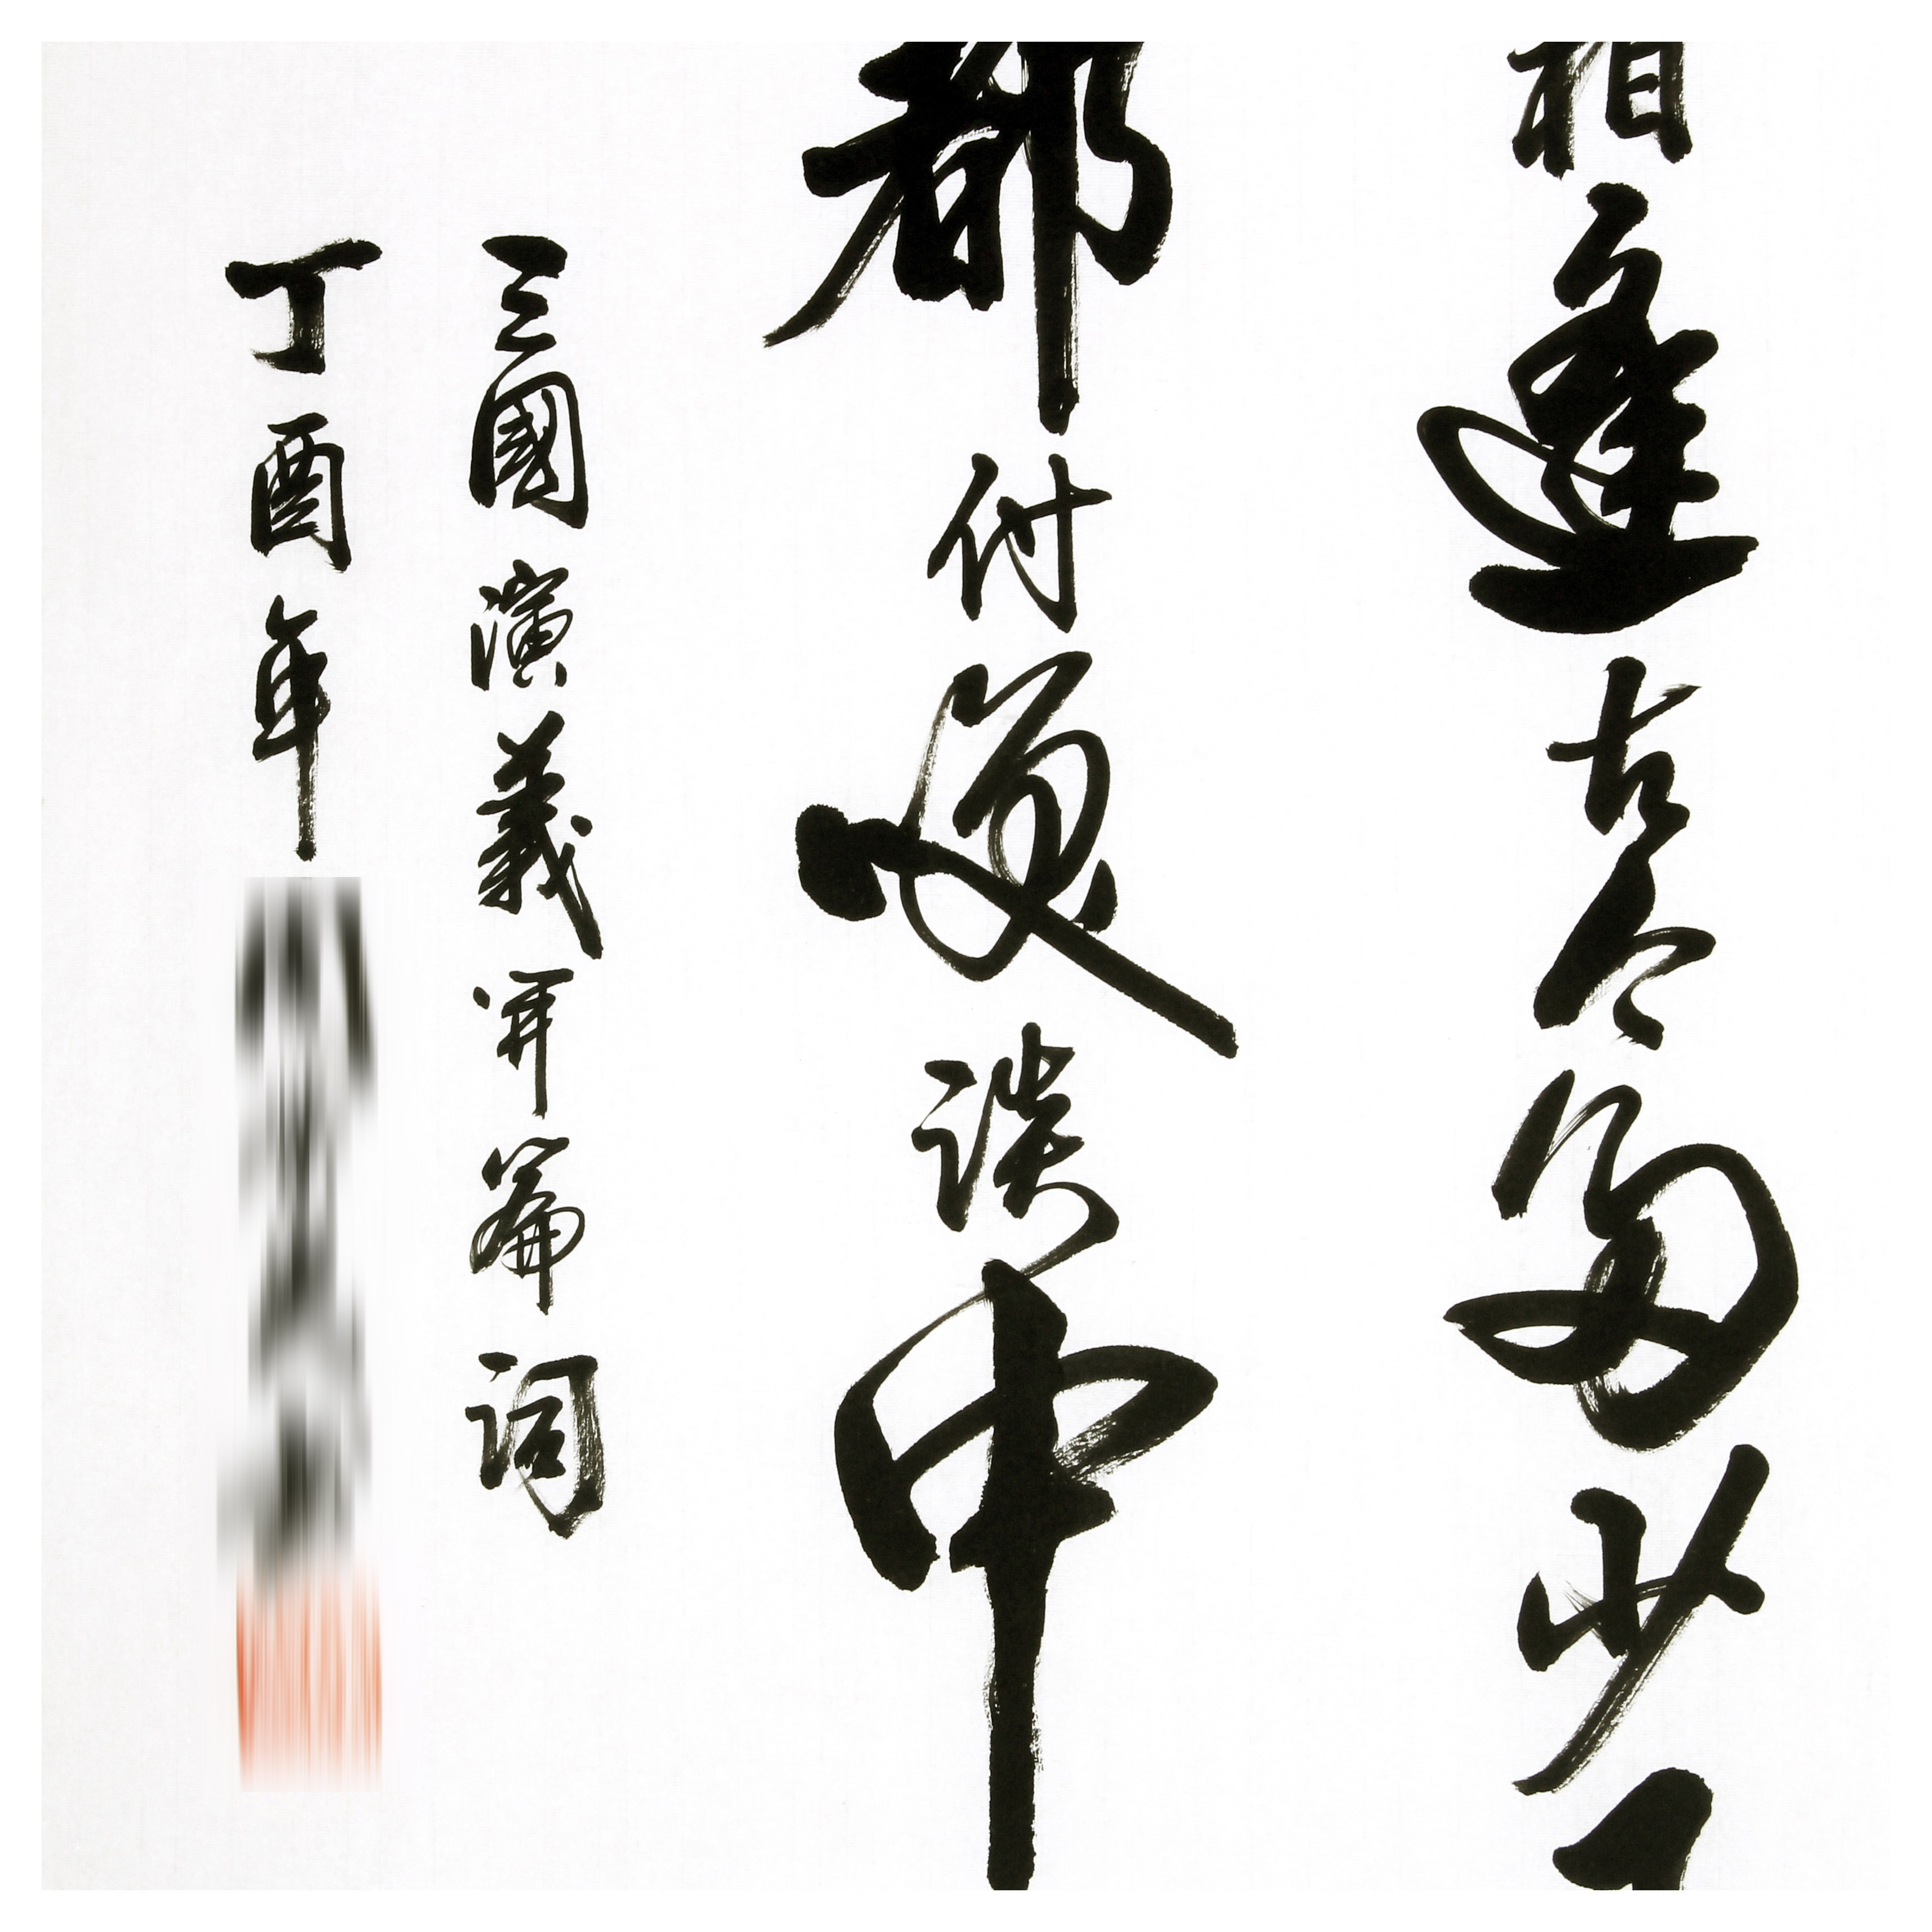 相逢古今多少
都付笑談中
三國演義開篇詞
丁酉年